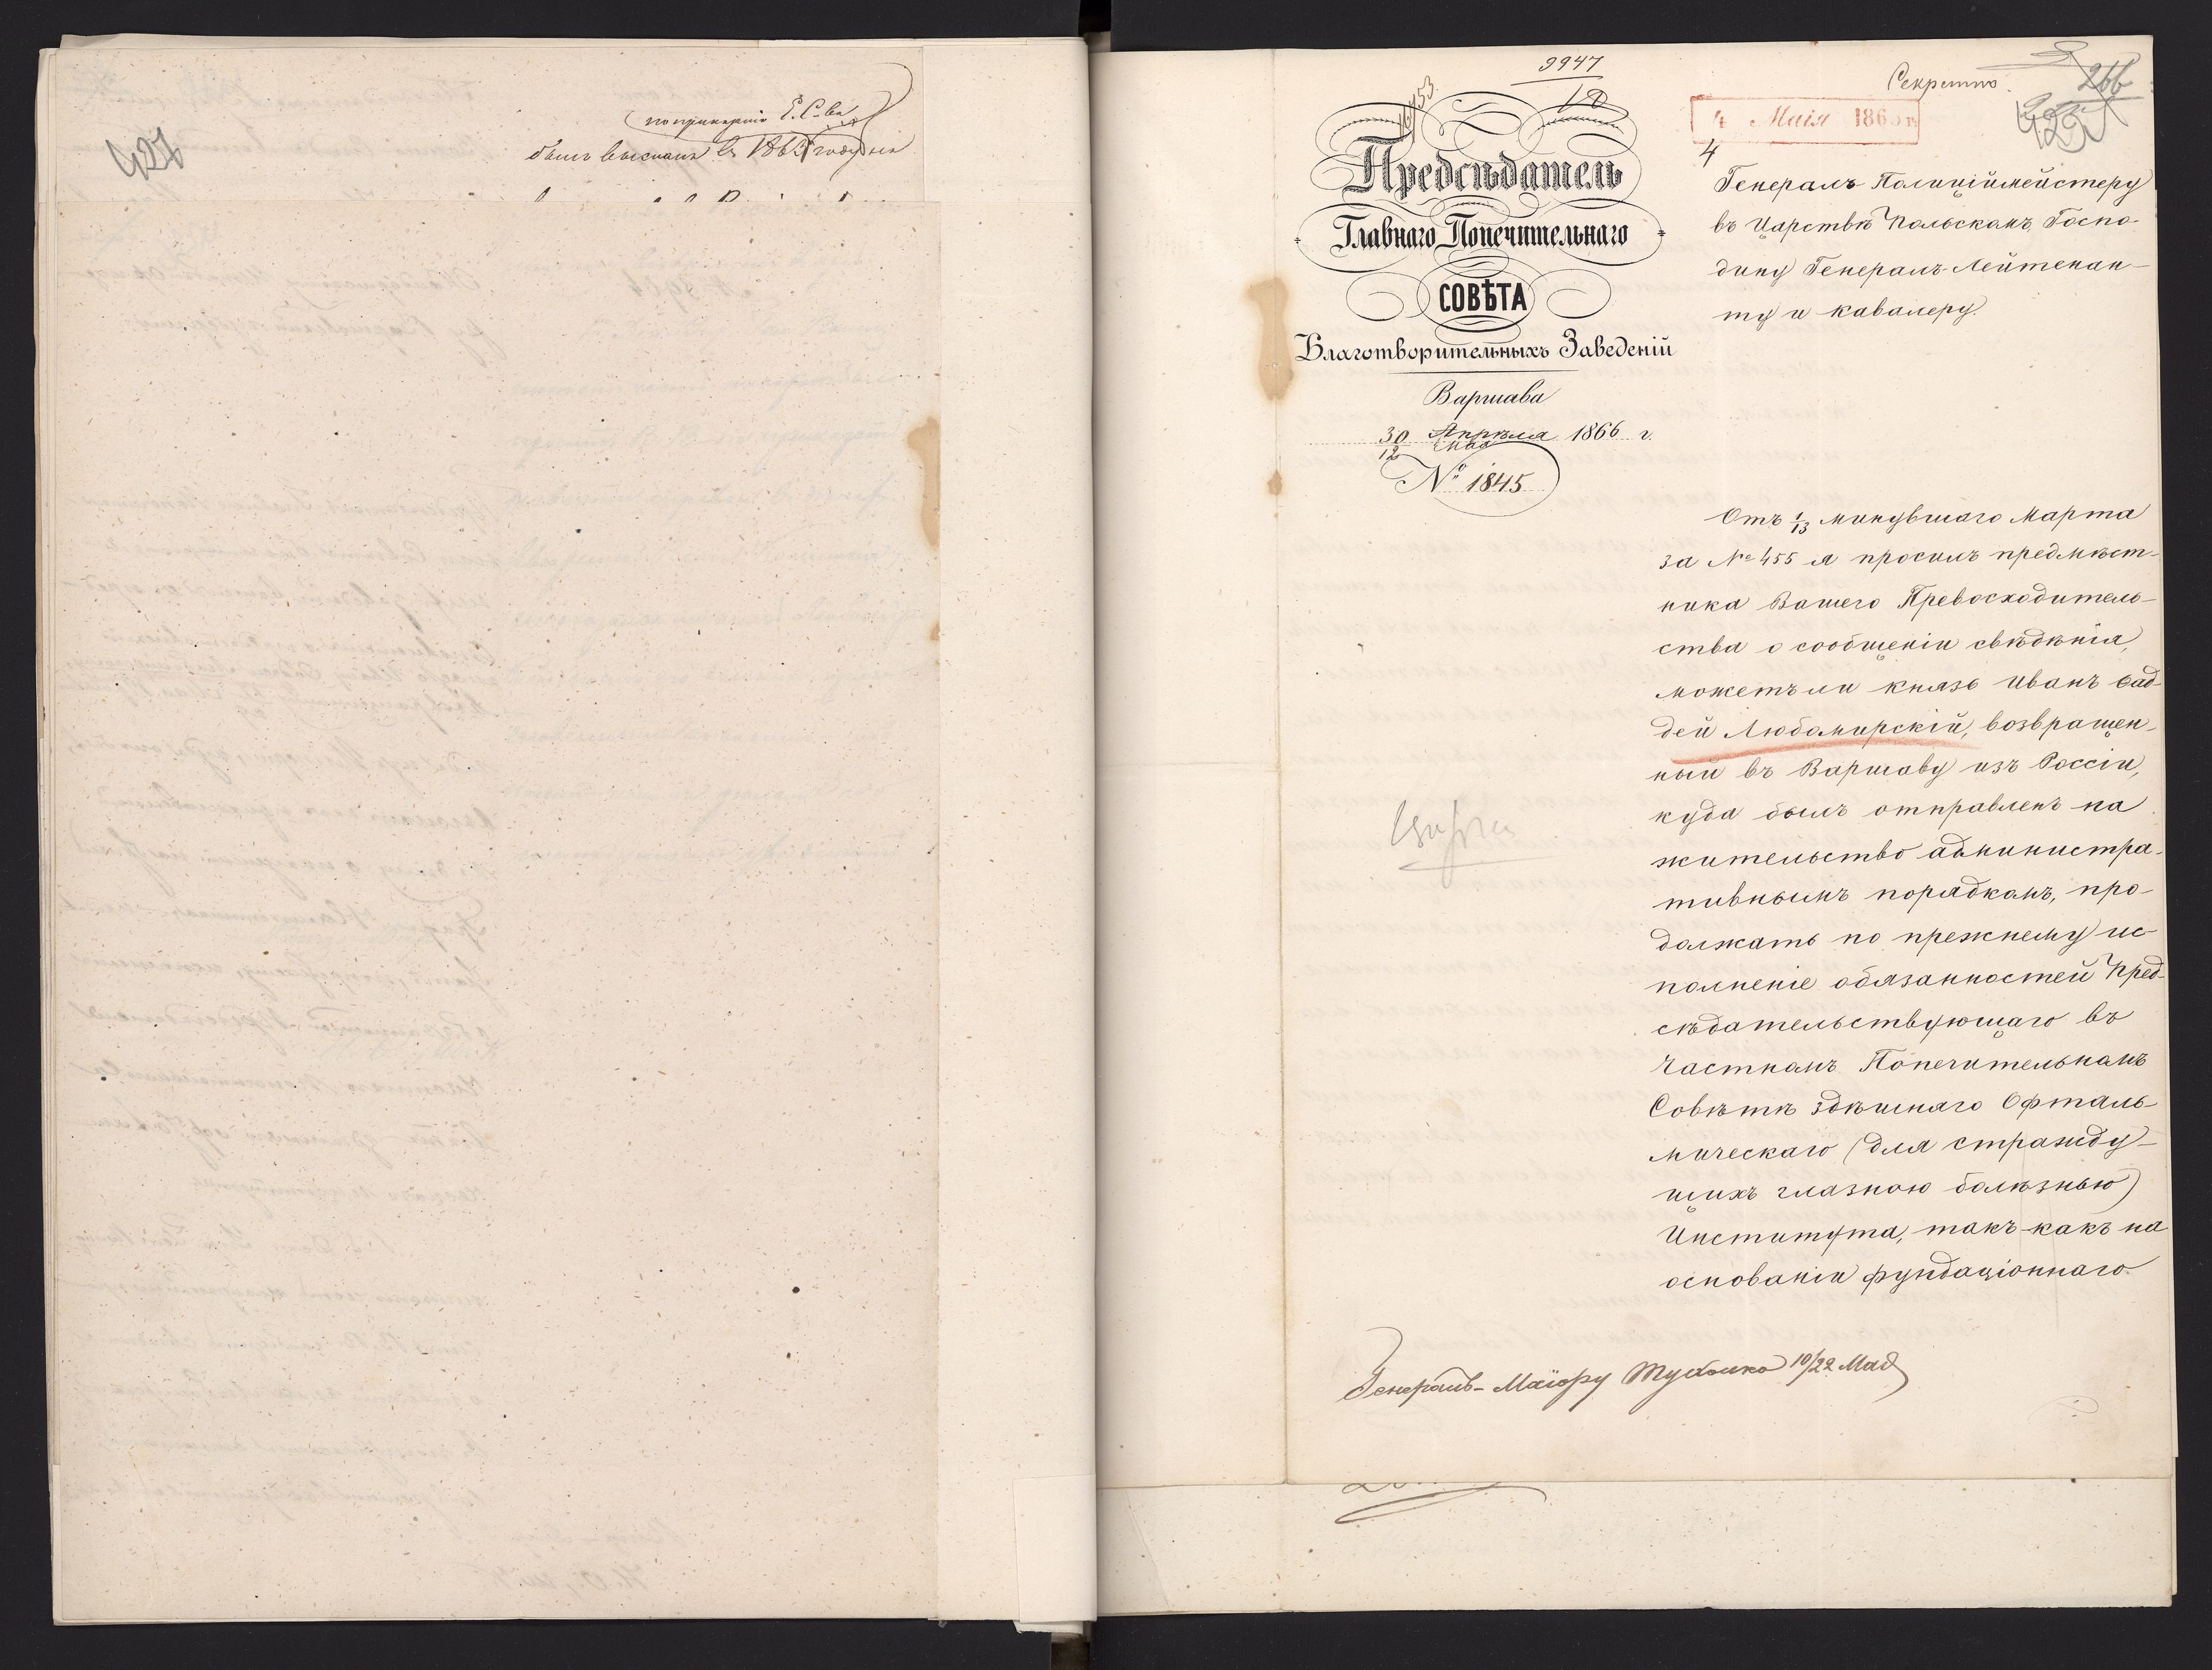 по приказанію Е. С-ва
былъ высланъ въ 186 году
9947
Секретно.
266
4 Маія 186 г.
4
Предсѣдатель
Главнаго Попечительнаго
СОВѢТА
Благотворительныхъ Заведеній
Варшава
30 Апрѣля 1866 г.
12 Мая
№ 1845
Генералъ Полиціймейстеру
въ Царствѣ Польскомъ, Госпо-
дину Генералъ-Лейтенан-
ту и кавалеру.
Отъ 1/13 минувшаго Марта
за № 455 я просилъ предмѣст-
ника Вашего Превосходитель-
ства о сообщеніи свѣдѣнія,
можетъ ли князь Иванъ Ѳад-
дей Любомирскій, возвращен-
ный въ Варшаву изъ Россіи,
куда былъ отправленъ на
жительство администра-
тивнымъ порядкомъ, про-
должать по прежнему ис-
полненіе обязанностей Пред-
сѣдательствующаго въ
Частномъ Попечительномъ
Совѣтѣ здѣшняго Офталь-
мическаго (для стражду-
щихъ глазною болѣзнью)
Института, такъ-какъ на
основаніи фундаціоннаго
Генералъ-Маіору Тухолко 10/22 Мая